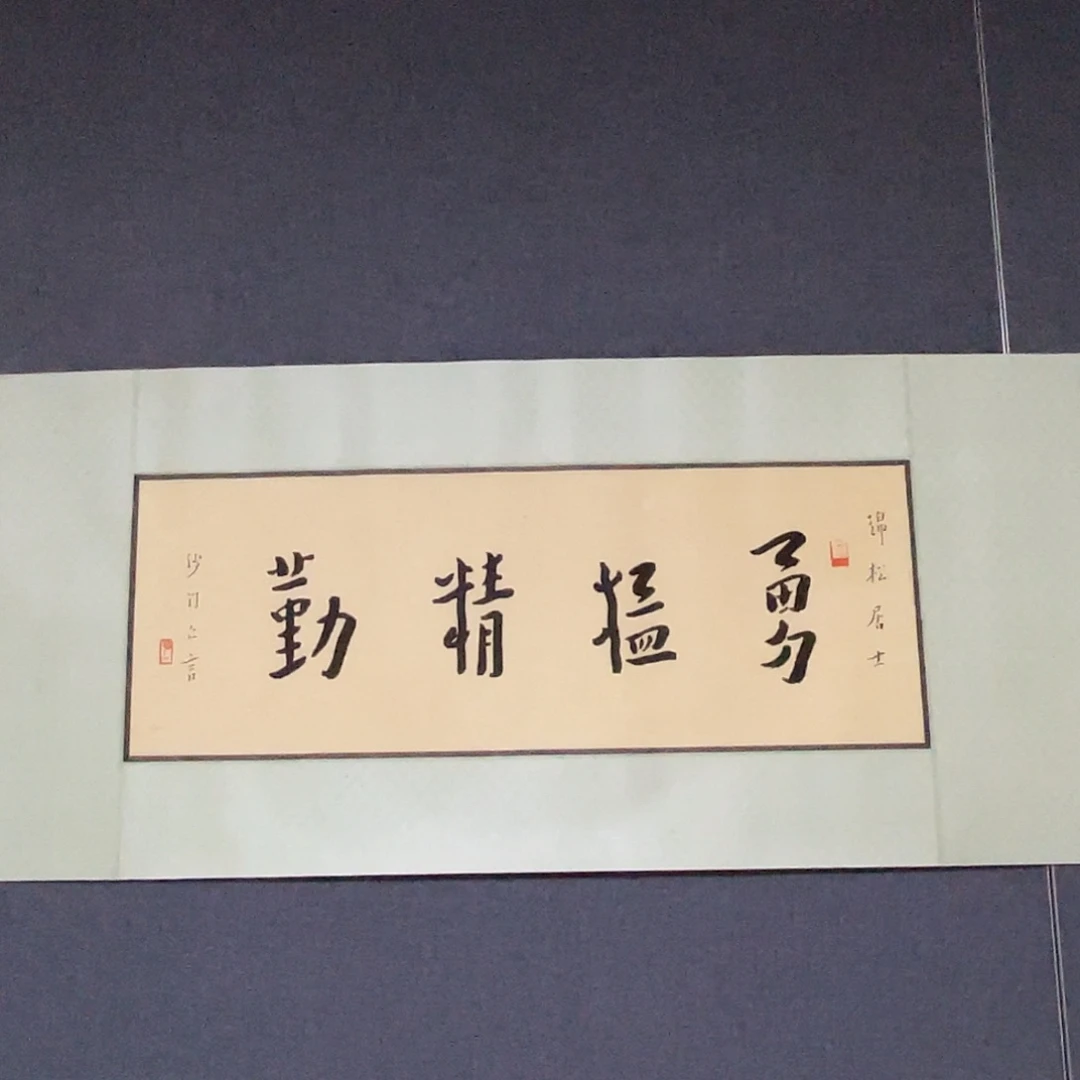 錦松居士
勇猛精勤
沙門亡言